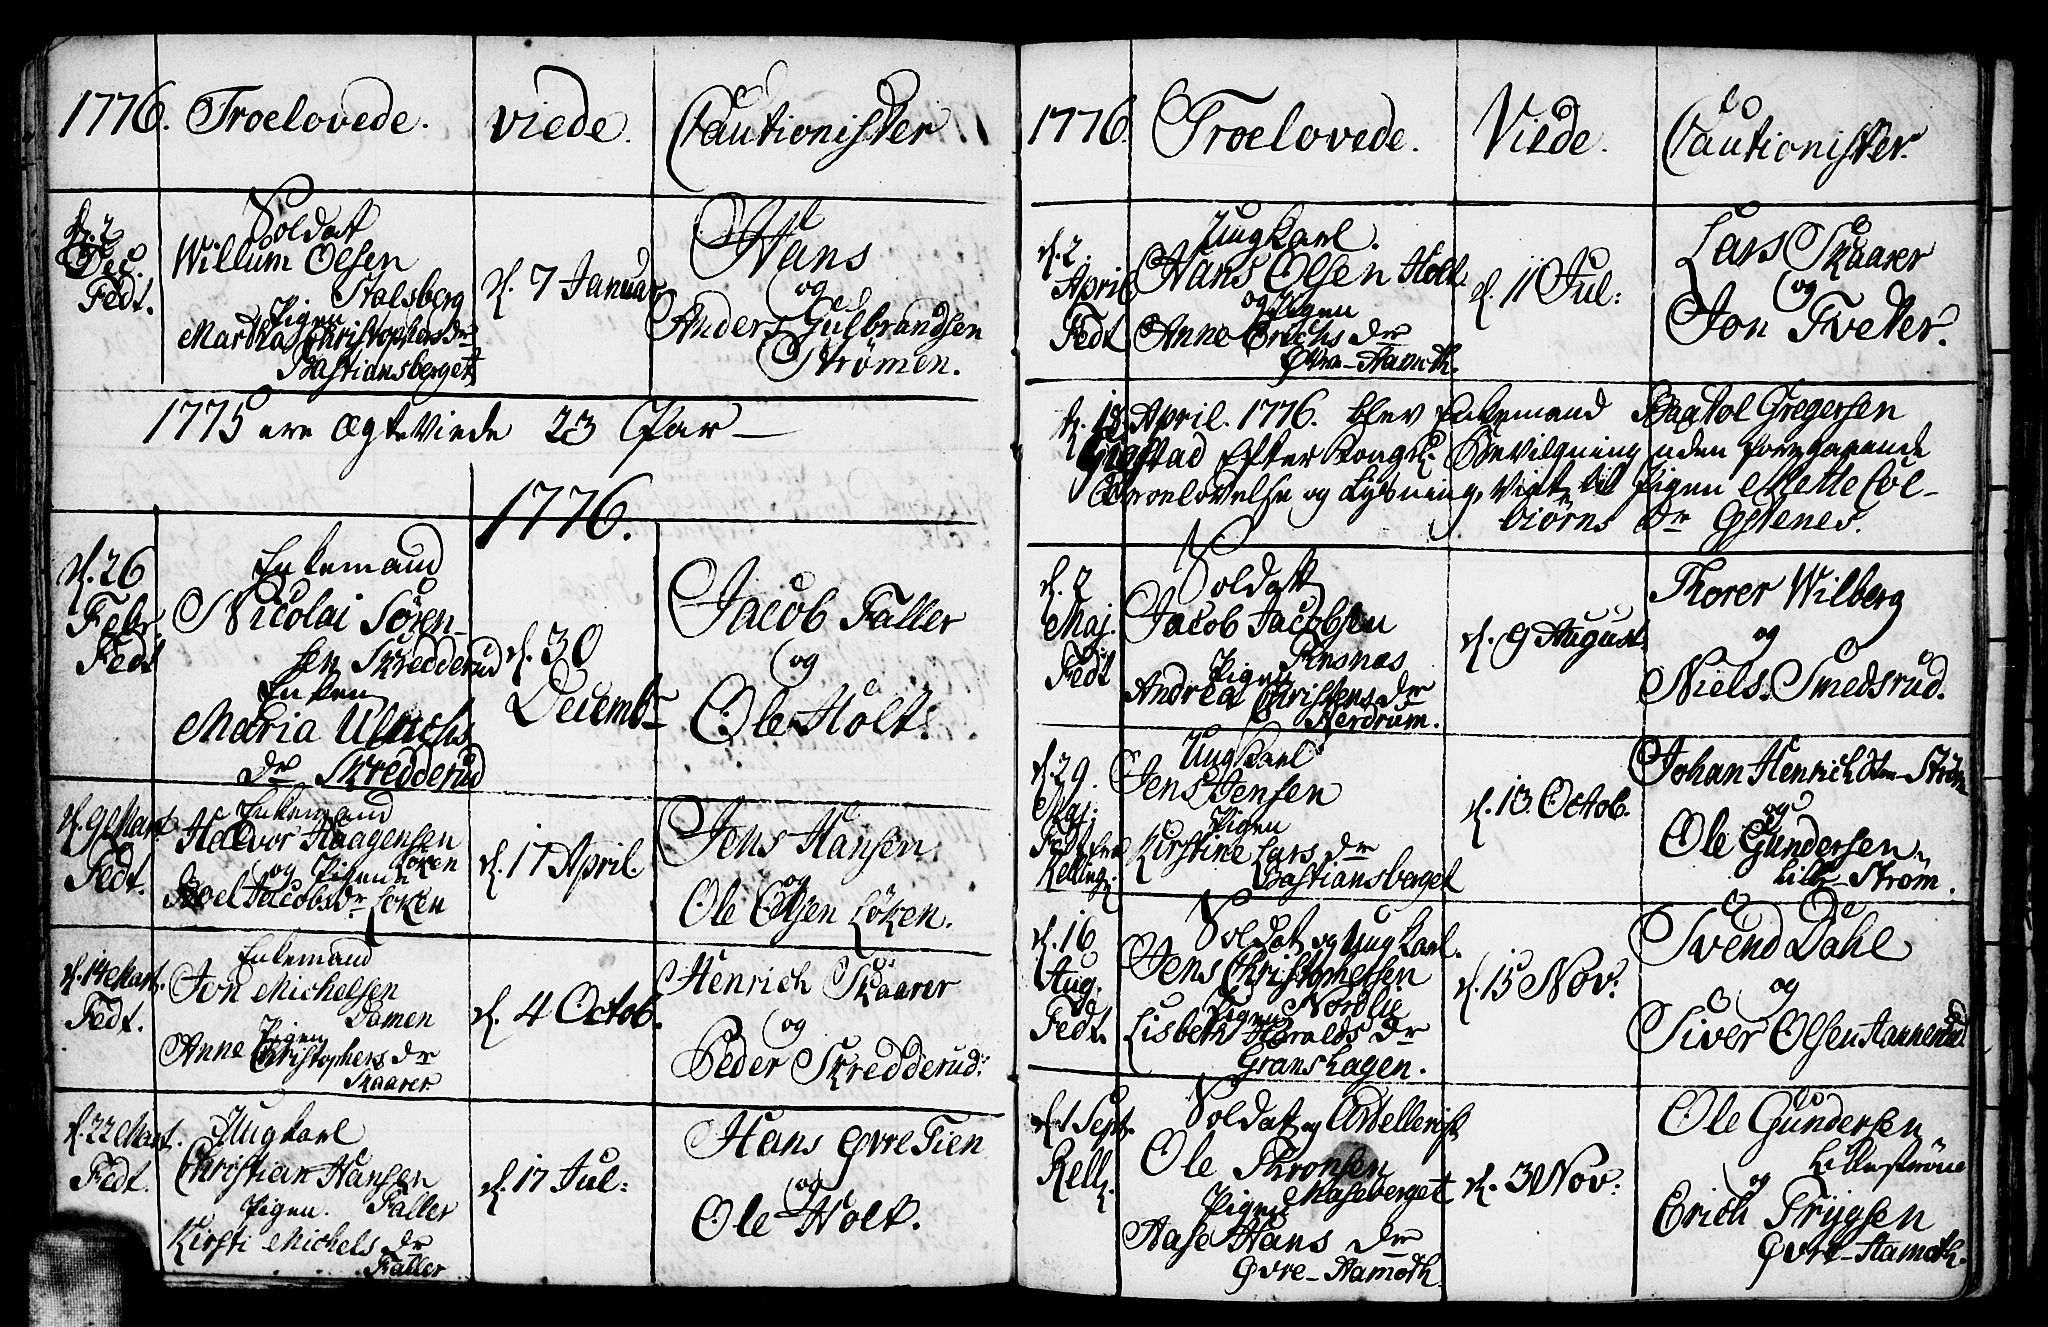 1776. Troelovede. viede. Cautionister
d. 2 Dec. Fedt.
Soldat
Willum Olsen
Stalsberg
Pigen
Martha Christophers dr
Bastiansberget
d. 7 Januar
Hans
og
Anders Gulbrandsen
Strømen.
1775 ere Ægte Viede 23 Par
1776.
d. 26
Febr
Fedt
Enkemand
Nicolai Sören-
sen Skredderud
Enken
Maria Ulrichs
dr Skredderud
d. 30
Decembr
Jacob Faller
og
Ole Holt.
d. 9 Mart
Fedt.
Enkemand
Halvor Haagensen
Løken
og Pigen
Boel Jacobsdr Løken
d. 17 April
Jens Hansen
og
Ole Olsen Løken.
d. 14 Mart.
Fedt.
Enkemand
Jon Michelsen
Damen
Pigen
Anne Christophers dr
Skaarer
d. 4 Octob.
Henrich Skaarer
og
Peder Skredderud.
d. 22 Mart.
Fedt.
Ung Karl
Christian Hansen
Faller
Pigen.
Kirsti Michels dr
Faller
d. 17 Jul:
Hans Øvre Tien
og
Ole Holt.
1776. Troelovede. Viede. Cautionister.
d. 2
April
Fedt
Ung Karl.
Hans Olsen Holt.
og Pigen
Anne Erichs dr
Øvre-Hamoth.
d. 11 Jul:
Lars Skaarer
og
Jon Tveter.
d. 18. April. 1776. blev Enkemand Baatol Gregersen
Gigstad Efter Kongel. Bevilgning uden foregaaende
Troelovelse og Lysning, Viet til Pigen Mette Col-
biørns dr Gstenes.
d. 2
Maj.
Fedt
Soldat
Jacob Jacobsen
Finsnæs
Pigen
Andrea Christens dr
Nerdrum.
d. 9 August.
Thorer Wilberg
og
Niels Smedsrud.
d. 29.
Maj.
Fedt fra
Relling.
Ung Karl
Jens Jensen
Pigen
Kirstine Lars dr
Bastiansberget
d. 13. Octob.
Johan Henrich Strøm
og
Ole Gundersen
Lille-Strøm.
d. 16
Aug.
Fedt.
Soldat og Ung Karl.
Jens Christophersen
Nordlie
Pigen
Lisbeth Haralds dr
Granshagen.
d. 15 Nov:
Svend Dahl
og
Siver Olsen Hannerud.
d. 1 Sept.
Rell.
Soldat og
Ole Thronsen
Maseberget
Pigen
Aase Hans dr
Øvre-Hamoth
d. 3 Nov:
Ole Gundersen
Lillestrøm
og
Erich Trygsen
Øvre-Hamoth.